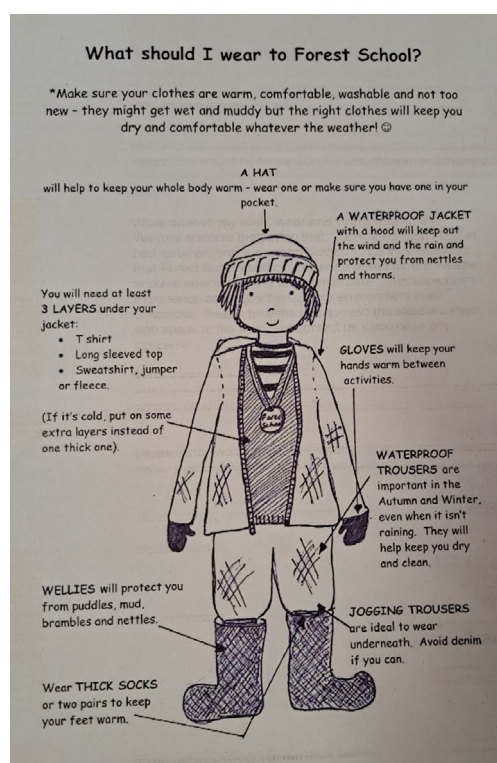 What should I wear to Forest School?
*Make sure your clothes are warm, comfortable, washable and not too
new – they might get wet and muddy but the right clothes will keep you
dry and comfortable whatever the weather! ☺
A HAT
will help to keep your whole body warm – wear one or make sure you have one in your
pocket.
A WATERPROOF JACKET
with a hood will keep out
the wind and the rain and
protect you from nettles
and thorns.
You will need at least
3 LAYERS under your
jacket:
• T shirt
• Long sleeved top
• Sweatshirt, jumper
or fleece.
GLOVES will keep your
hands warm between
activities.
(If it's cold, put on some
extra layers instead of
one thick one).
Forest
School
WATERPROOF
TROUSERS are
important in the
Autumn and Winter,
even when it isn't
raining. They will
help keep you dry
and clean.
WELLIES will protect you
from puddles, mud,
brambles and nettles.
JOGGING TROUSERS
are ideal to wear
underneath. Avoid denim
if you can.
Wear THICK SOCKS
or two pairs to keep
your feet warm.